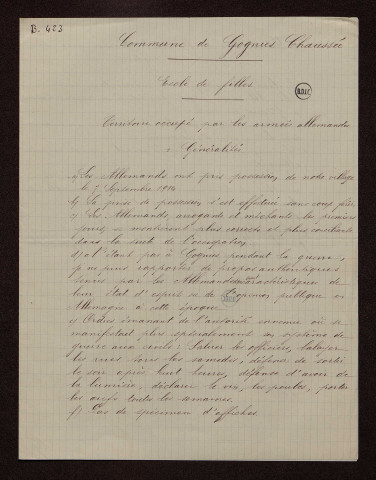 B. 423
Commune de Gognies Chaussée
BDIC
Ecole de filles
Territoire occupé par les armées allemandes
Généralités
a) Les Allemands ont pris possession de notre village
le 7 Septembre 1914
b) La prise de possession s'est effectuée sans coup férir
c) Les Allemands, arrogants et méchants les premiers
jours, se montrèrent plus corrects et plus conciliants
dans la suite de l'occupation
d) N'étant pas à Gognies pendant la guerre,
je ne puis rapporter de propos authentiques
tenus par les Allemands caractéristiques de
leur état d'esprit et de l'opinion publique en
Allemagne à cette époque.
e) Ordres émanant de l'autorité ennemie où se
manifestait plus spécialement un système de
guerre aux civils: Saluer les officiers, balayer
les rues tous les samedis, défense de sortir
le soir après huit heures, défense d'avoir de
la lumière, déclarer le vin, les poules, porter
les œufs toutes les semaines.
f) Pas de spécimen d'affiches